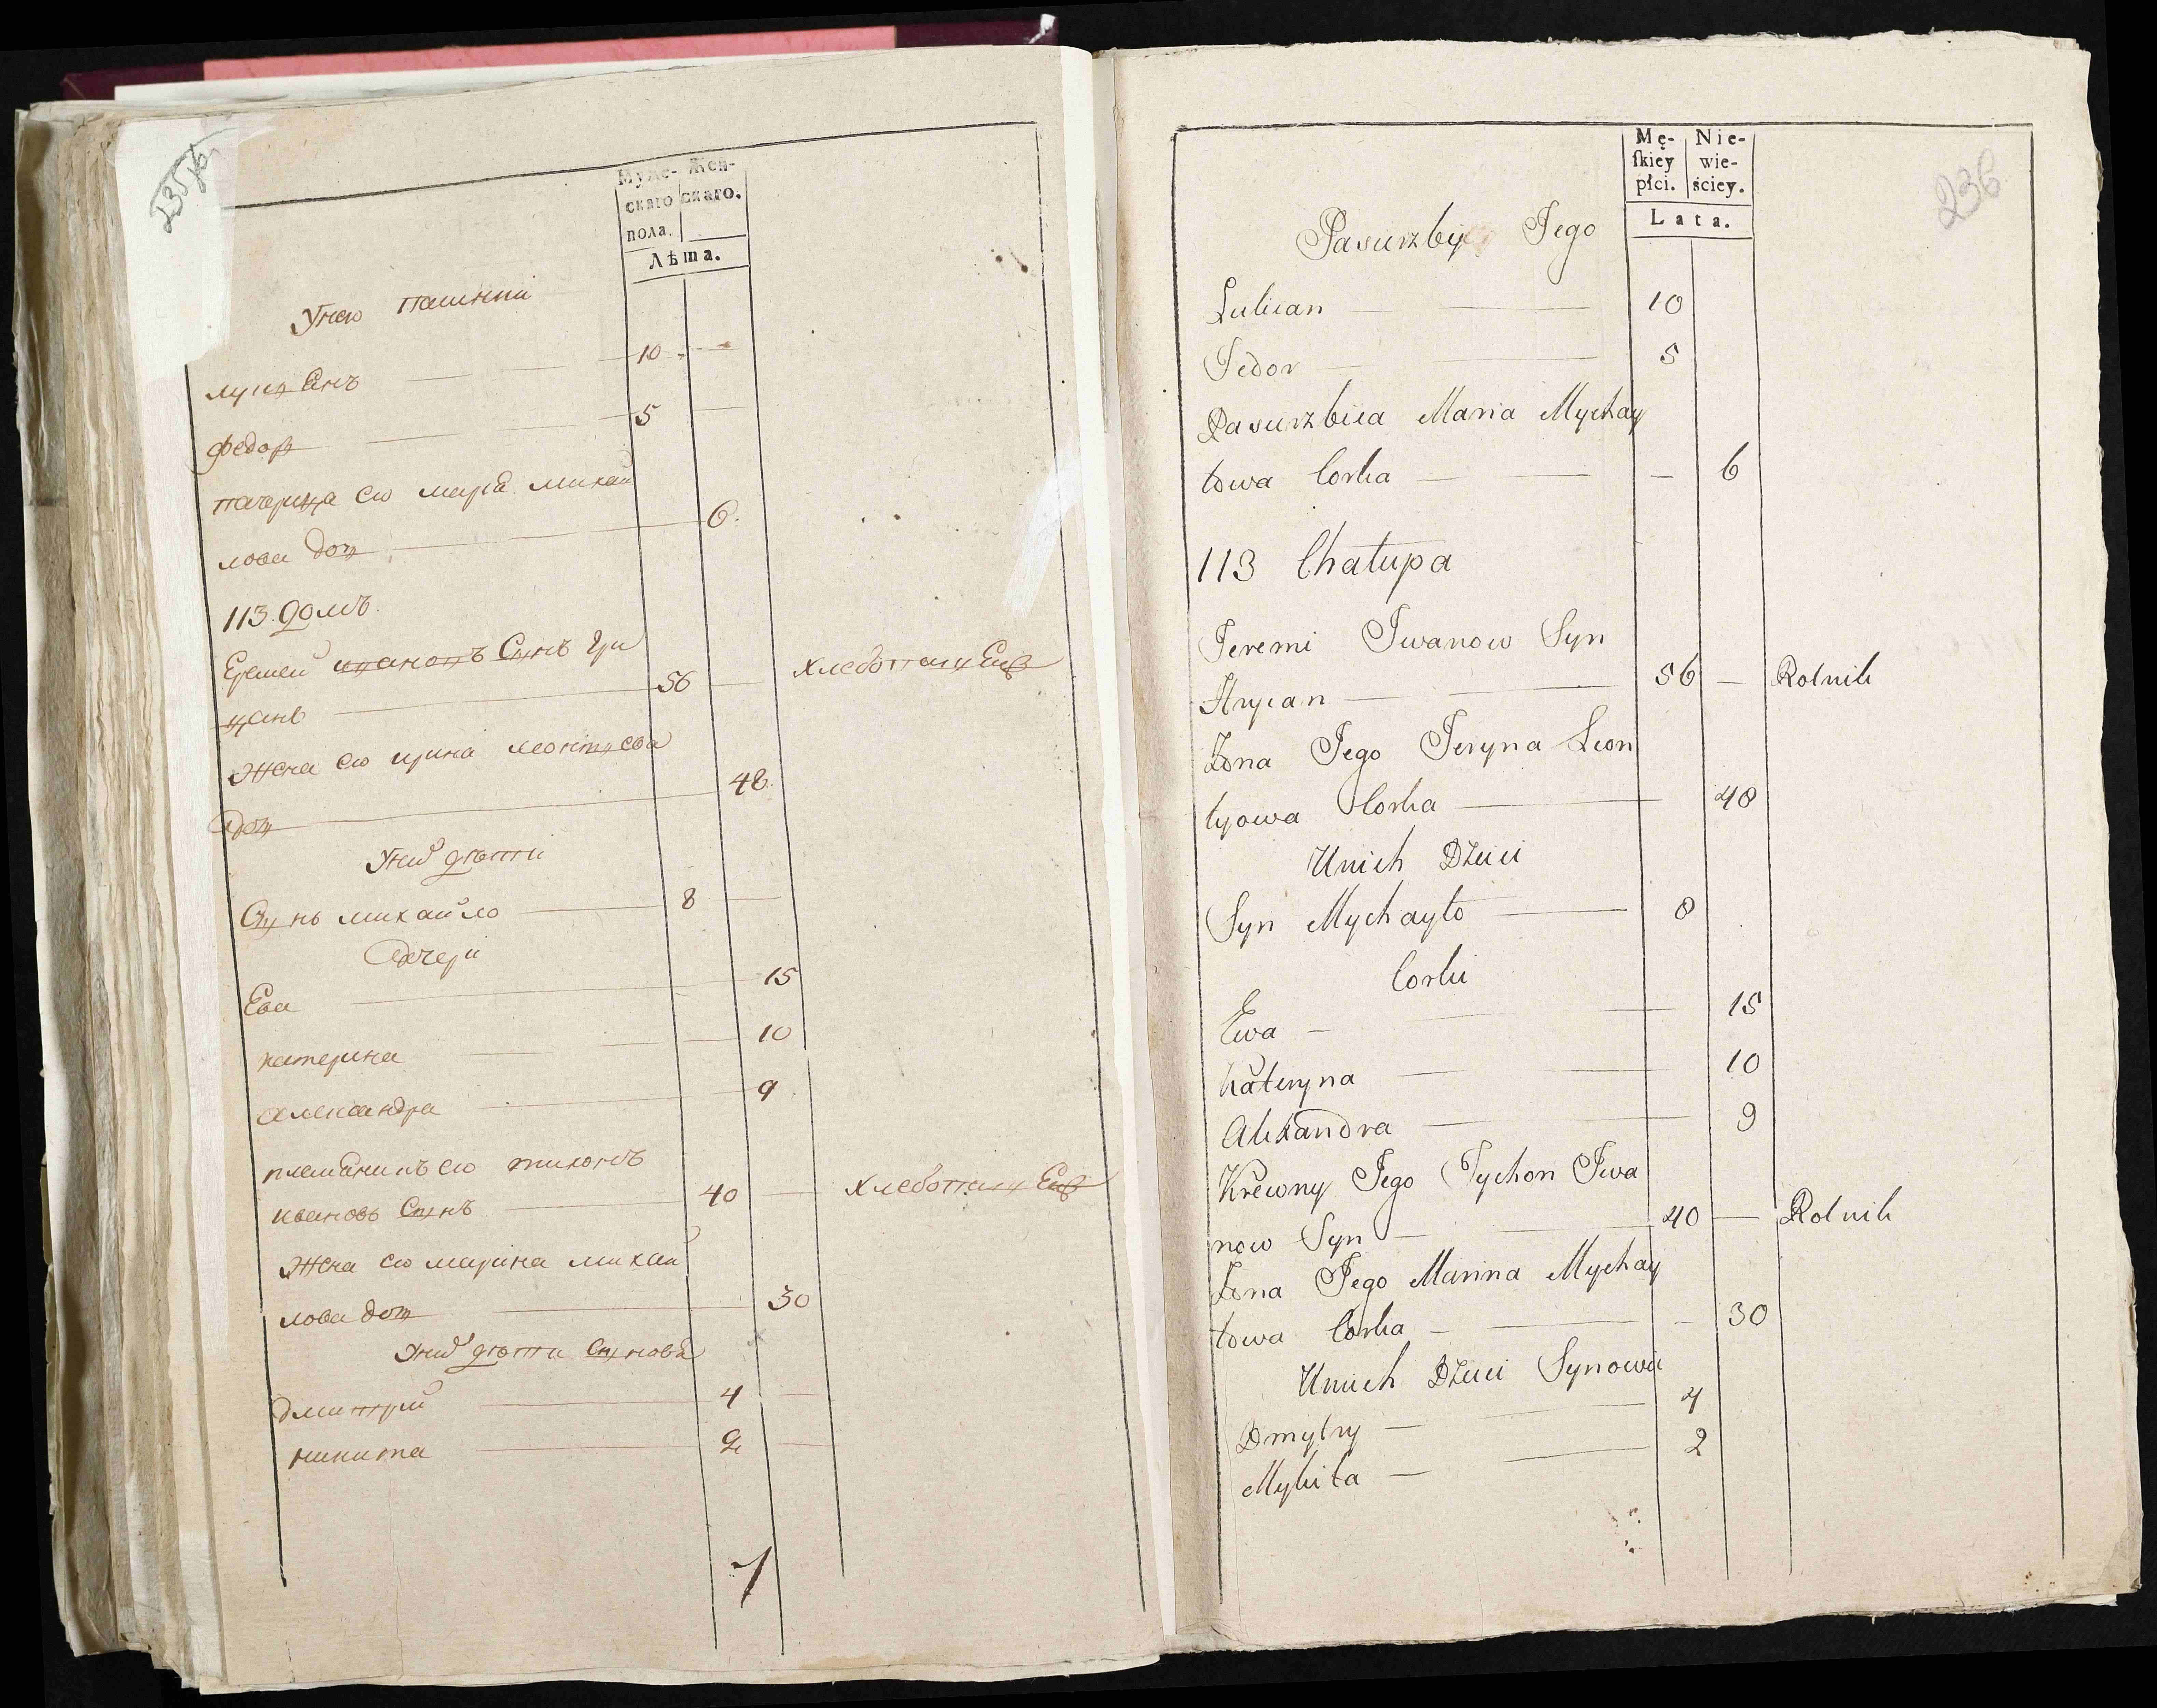 235 об
Муже- Жен-
скаго скаго.
пола.
Лѣта.
У него пасинки
лукꙗнъ 10
федор 5
пачерица его мариꙗ михай
лова доч 6
113 домъ
Еремей ивановъ сынъ гри
цанъ 56 хлебопашец
жена его ирина леонтиева
доч 48
У них дѣти
Сынъ михайло 8
дочери
Ева 15
катерина 10
александра 9
племѧникъ его тихонъ
ивановъ сынъ 40 хлебопашец
жена его марина михай
лова доч 30
У них дѣти сынова
дмитрий 4
никита 2
236
Mę- Nie-
skiey wie-
płci. ściey.
Lata.
Pasierzby Jego
Lukian 10
Fedor 5
Pasierzbica Maria Mychay
łowa Corka 6
113 Chałupa
Jeremi Iwanow Syn
Hrycan 56 Rolnik
Żona Jego Jeryna Leon
tyowa Corka 48
U nich Dzieci
Syn Mychayło 8
Corki
Ewa 15
Kateryna 10
Alexandra 9
Krewny Jego Tychon Iwa
now Syn 40 Rolnik
Żona Jego Marina Mychay
łowa Corka 30
U nich Dzieci Synowie
Dmytry 4
Mykita 2